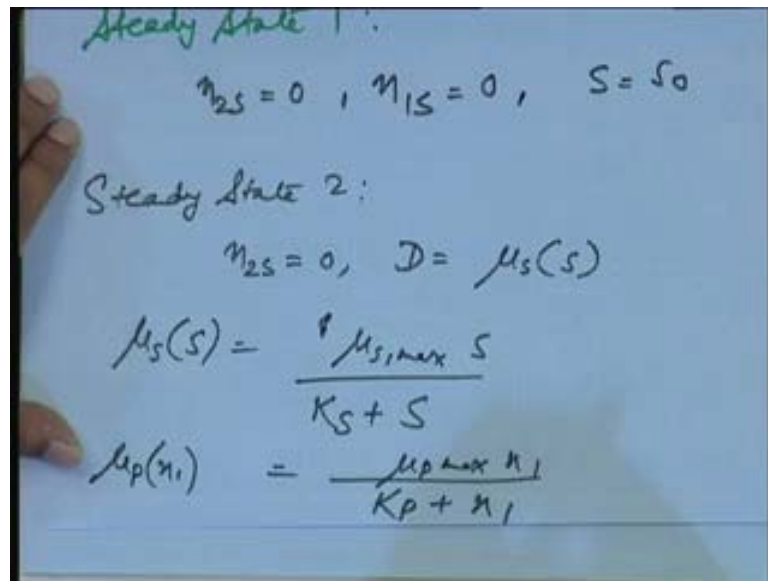 Steady State 1:
n₂ₛ = 0 , n₁ₛ = 0 , S = S₀
Steady State 2:
n₂ₛ = 0, D = μₛ(S)
μₛ(S) = μₛ,max S / Kₛ + S
μₚ(n₁) = μₚ max n₁ / Kₚ + n₁